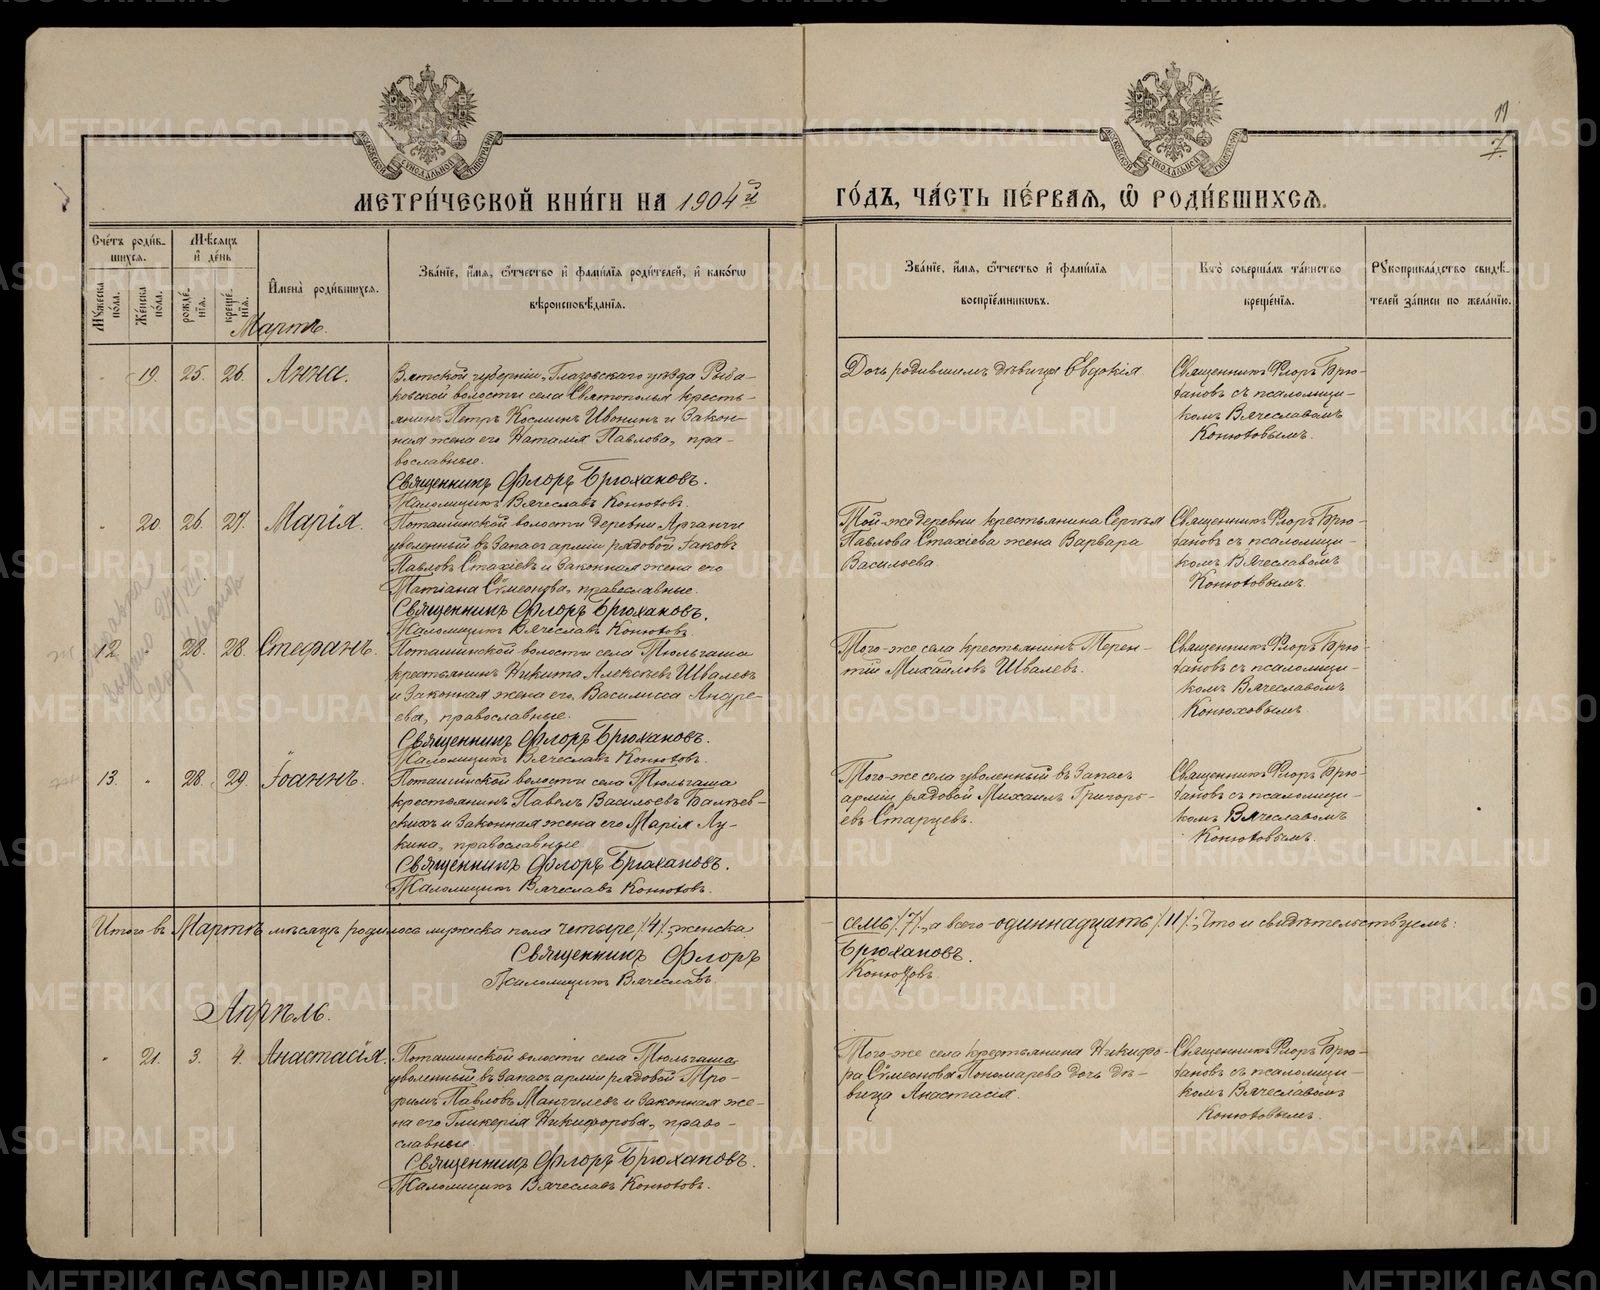 МЕТРИ́ЧЕСКОЙ КНИ́ГИ НА 1904й ГО́ДЪ, ЧА́СТЬ ПЕ́РВАѦ, Ѽ РОДИ́ВШИХСѦ.
19
7
Сче́тъ роди́в-
шихсѧ.
Мѣ́сѧцъ
и҆ де́нь
Мꙋ́жеска
по́ла.
Же́нска
по́ла.
рожде́-
нїѧ.
креще́-
нїѧ.
И҆мена̀ роди́вшихсѧ.
Зва́нїе, и҆́мѧ, ѻ҆́тчество и҆ фами́лїѧ роди́телей, и҆ како́гѡ
вѣроисповѣ́данїѧ.
Зва́нїе, и҆́мѧ, ѻ҆́тчество и҆ фами́лїѧ
воспрїе́мникѡвъ.
Кто̀ соверша́лъ та́инство
креще́нїѧ.
Рꙋкоприкла́дство свидѣ́-
телей за́писи по жела́нїю.
Мартъ.
19. 25. 26. Анна.
Вятской губернiи, Глазовскаго уѣзда Рыба-
ковской волости села Святополья кресть-
янинъ Петръ Космин Ивонинъ и закон-
ная жена его Наталiя Павлова, пра-
вославные.
Священникъ Флоръ Брюхановъ.
Псаломщикъ Вячеславъ Конюховъ.
Дочь родившимъ дѣвица Евдокiя
Священникъ Флоръ Брю-
хановъ съ псаломщи-
комъ Вячеславомъ
Конюховымъ.
20. 26. 27. Марiя.
Поташинской волости деревни Арганчи
уволенный въ запасъ армiи рядовой Iаковъ
Павловъ Стахiевъ и законная жена его
Татiана Сѵмеонова, православные.
Священникъ Флоръ Брюхановъ.
Псаломщикъ Вячеславъ Конюховъ.
Той-же деревни крестьянина Сергѣя
Павлова Стахiева жена Варвара
Васильева.
Священникъ Флоръ Брю-
хановъ съ псаломщи-
комъ Вячеславомъ
Конюховымъ.
12. 28. 28. Стефанъ.
Поташинской волости села Тюльгаша
крестьянинъ Никита Алексѣевъ Ивалевъ
и законная жена его, Василисса Андре-
ева, православные.
Священникъ Флоръ Брюхановъ.
Псаломщикъ Вячеславъ Конюховъ.
Того-же села крестьянинъ Терен-
тiй Михайловъ Ивалевъ.
Священникъ Флоръ Брю-
хановъ съ псаломщи-
комъ Вячеславомъ
Конюховымъ.
13. 28. 29. Iоаннъ.
Поташинской волости села Тюльгаша
крестьянинъ Павелъ Васильевъ
и законная жена его Марiя Лу-
кина, православные
Священникъ Флоръ Брюхановъ.
Псаломщикъ Вячеславъ Конюховъ.
Того-же села уволенный въ запасъ
армiи рядовой Михаилъ Григорь-
евъ Старцевъ.
Священникъ Флоръ Брю-
хановъ съ псаломщи-
комъ Вячеславомъ
Конюховымъ.
Итого въ Мартѣ мѣсяцѣ родилось мужеска пола четыре /4/, женска семь /7/, а всего одиннадцать /11/; Что и свидѣтельствуемъ:
Священникъ Флоръ Брюхановъ.
Псаломщикъ Вячеславъ Конюховъ.
Апрѣль.
21. 3. 4. Анастасiя.
Поташинской волости села Тюльгаша
уволенный въ запасъ армiи рядовой Тро-
фимъ Павловъ Манчилевъ и законная же-
на его Гликерiя Никифорова, право-
славные.
Священникъ Флоръ Брюхановъ.
Псаломщикъ Вячеславъ Конюховъ.
Того-же села крестьянина Никифо-
ра Сѵмеонова Пономарева дочь дѣ-
вица Анастасiя.
Священникъ Флоръ Брю-
хановъ съ псаломщи-
комъ Вячеславомъ
Конюховымъ.
METRIKI.GASO-URAL.RU